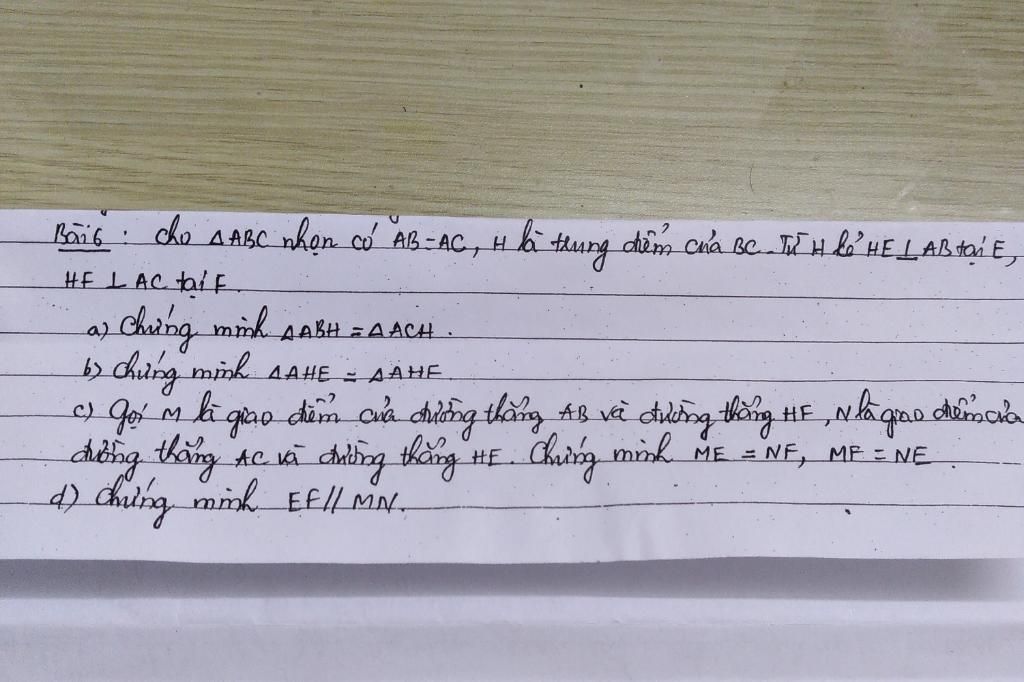 Bài 6 : Cho ΔABC nhọn có AB = AC, H là trung điểm của BC. Từ H kẻ HE ⊥ AB tại E,
HF ⊥ AC tại F.
a) Chứng minh ΔABH = ΔACH.
b) Chứng minh ΔAHE = ΔAHF.
c) Gọi M là giao điểm của đường thẳng AB và đường thẳng HF, N là giao điểm của
đường thẳng AC và đường thẳng HE. Chứng minh ME = NF, MF = NE.
d) Chứng minh EF // MN.